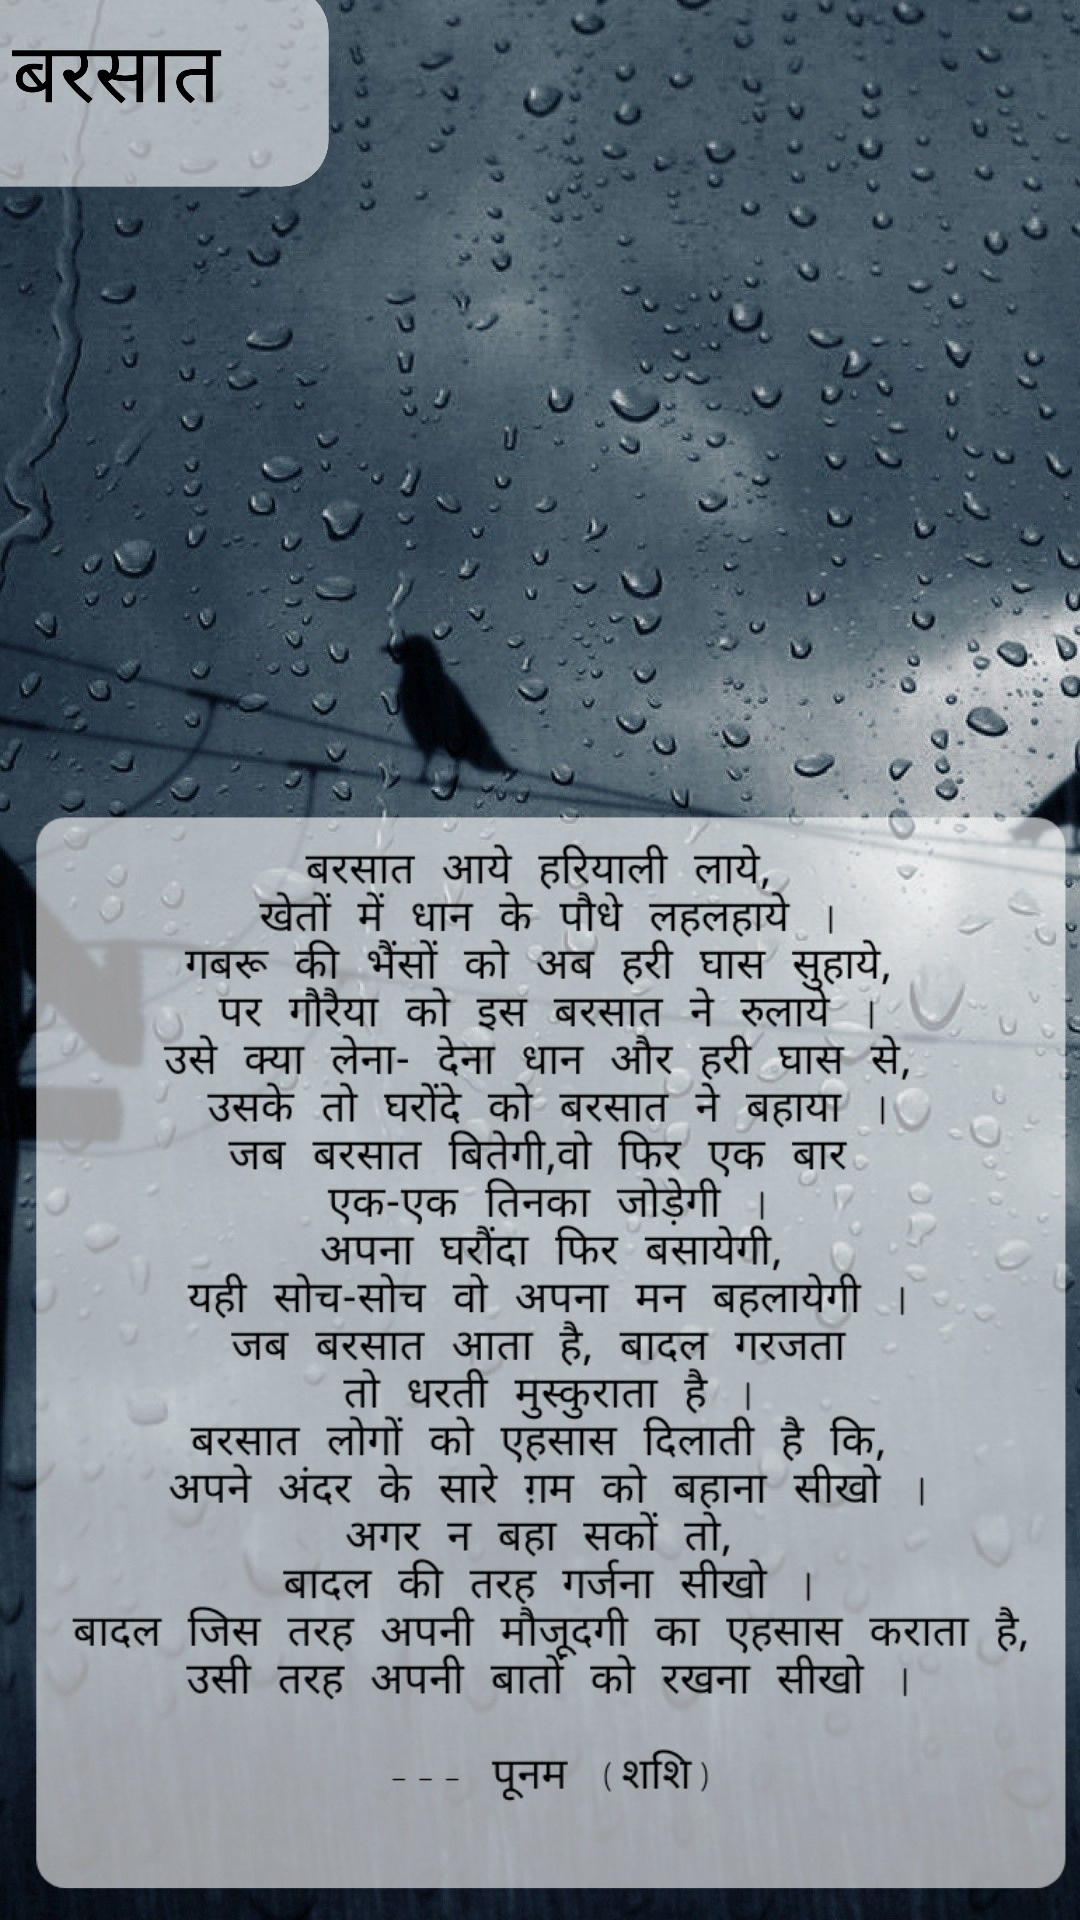 बरसात
बरसात आये हरियाली लाये,
खेतों में धान के पौधे लहलहाये ।
गबरू की भैंसों को अब हरी घास सुहाये,
पर गौरैया को इस बरसात ने रुलाये ।
उसे क्या लेना- देना धान और हरी घास से,
उसके तो घरोंदे को बरसात ने बहाया ।
जब बरसात बितेगी,वो फिर एक बार
एक-एक तिनका जोड़ेगी ।
अपना घरौंदा फिर बसायेगी,
यही सोच-सोच वो अपना मन बहलायेगी ।
जब बरसात आता है, बादल गरजता
तो धरती मुस्कुराता है ।
बरसात लोगों को एहसास दिलाती है कि,
अपने अंदर के सारे ग़म को बहाना सीखो ।
अगर न बहा सकों तो,
बादल की तरह गर्जना सीखो ।
बादल जिस तरह अपनी मौजूदगी का एहसास कराता है,
उसी तरह अपनी बातों को रखना सीखो ।
--- पूनम (शशि)